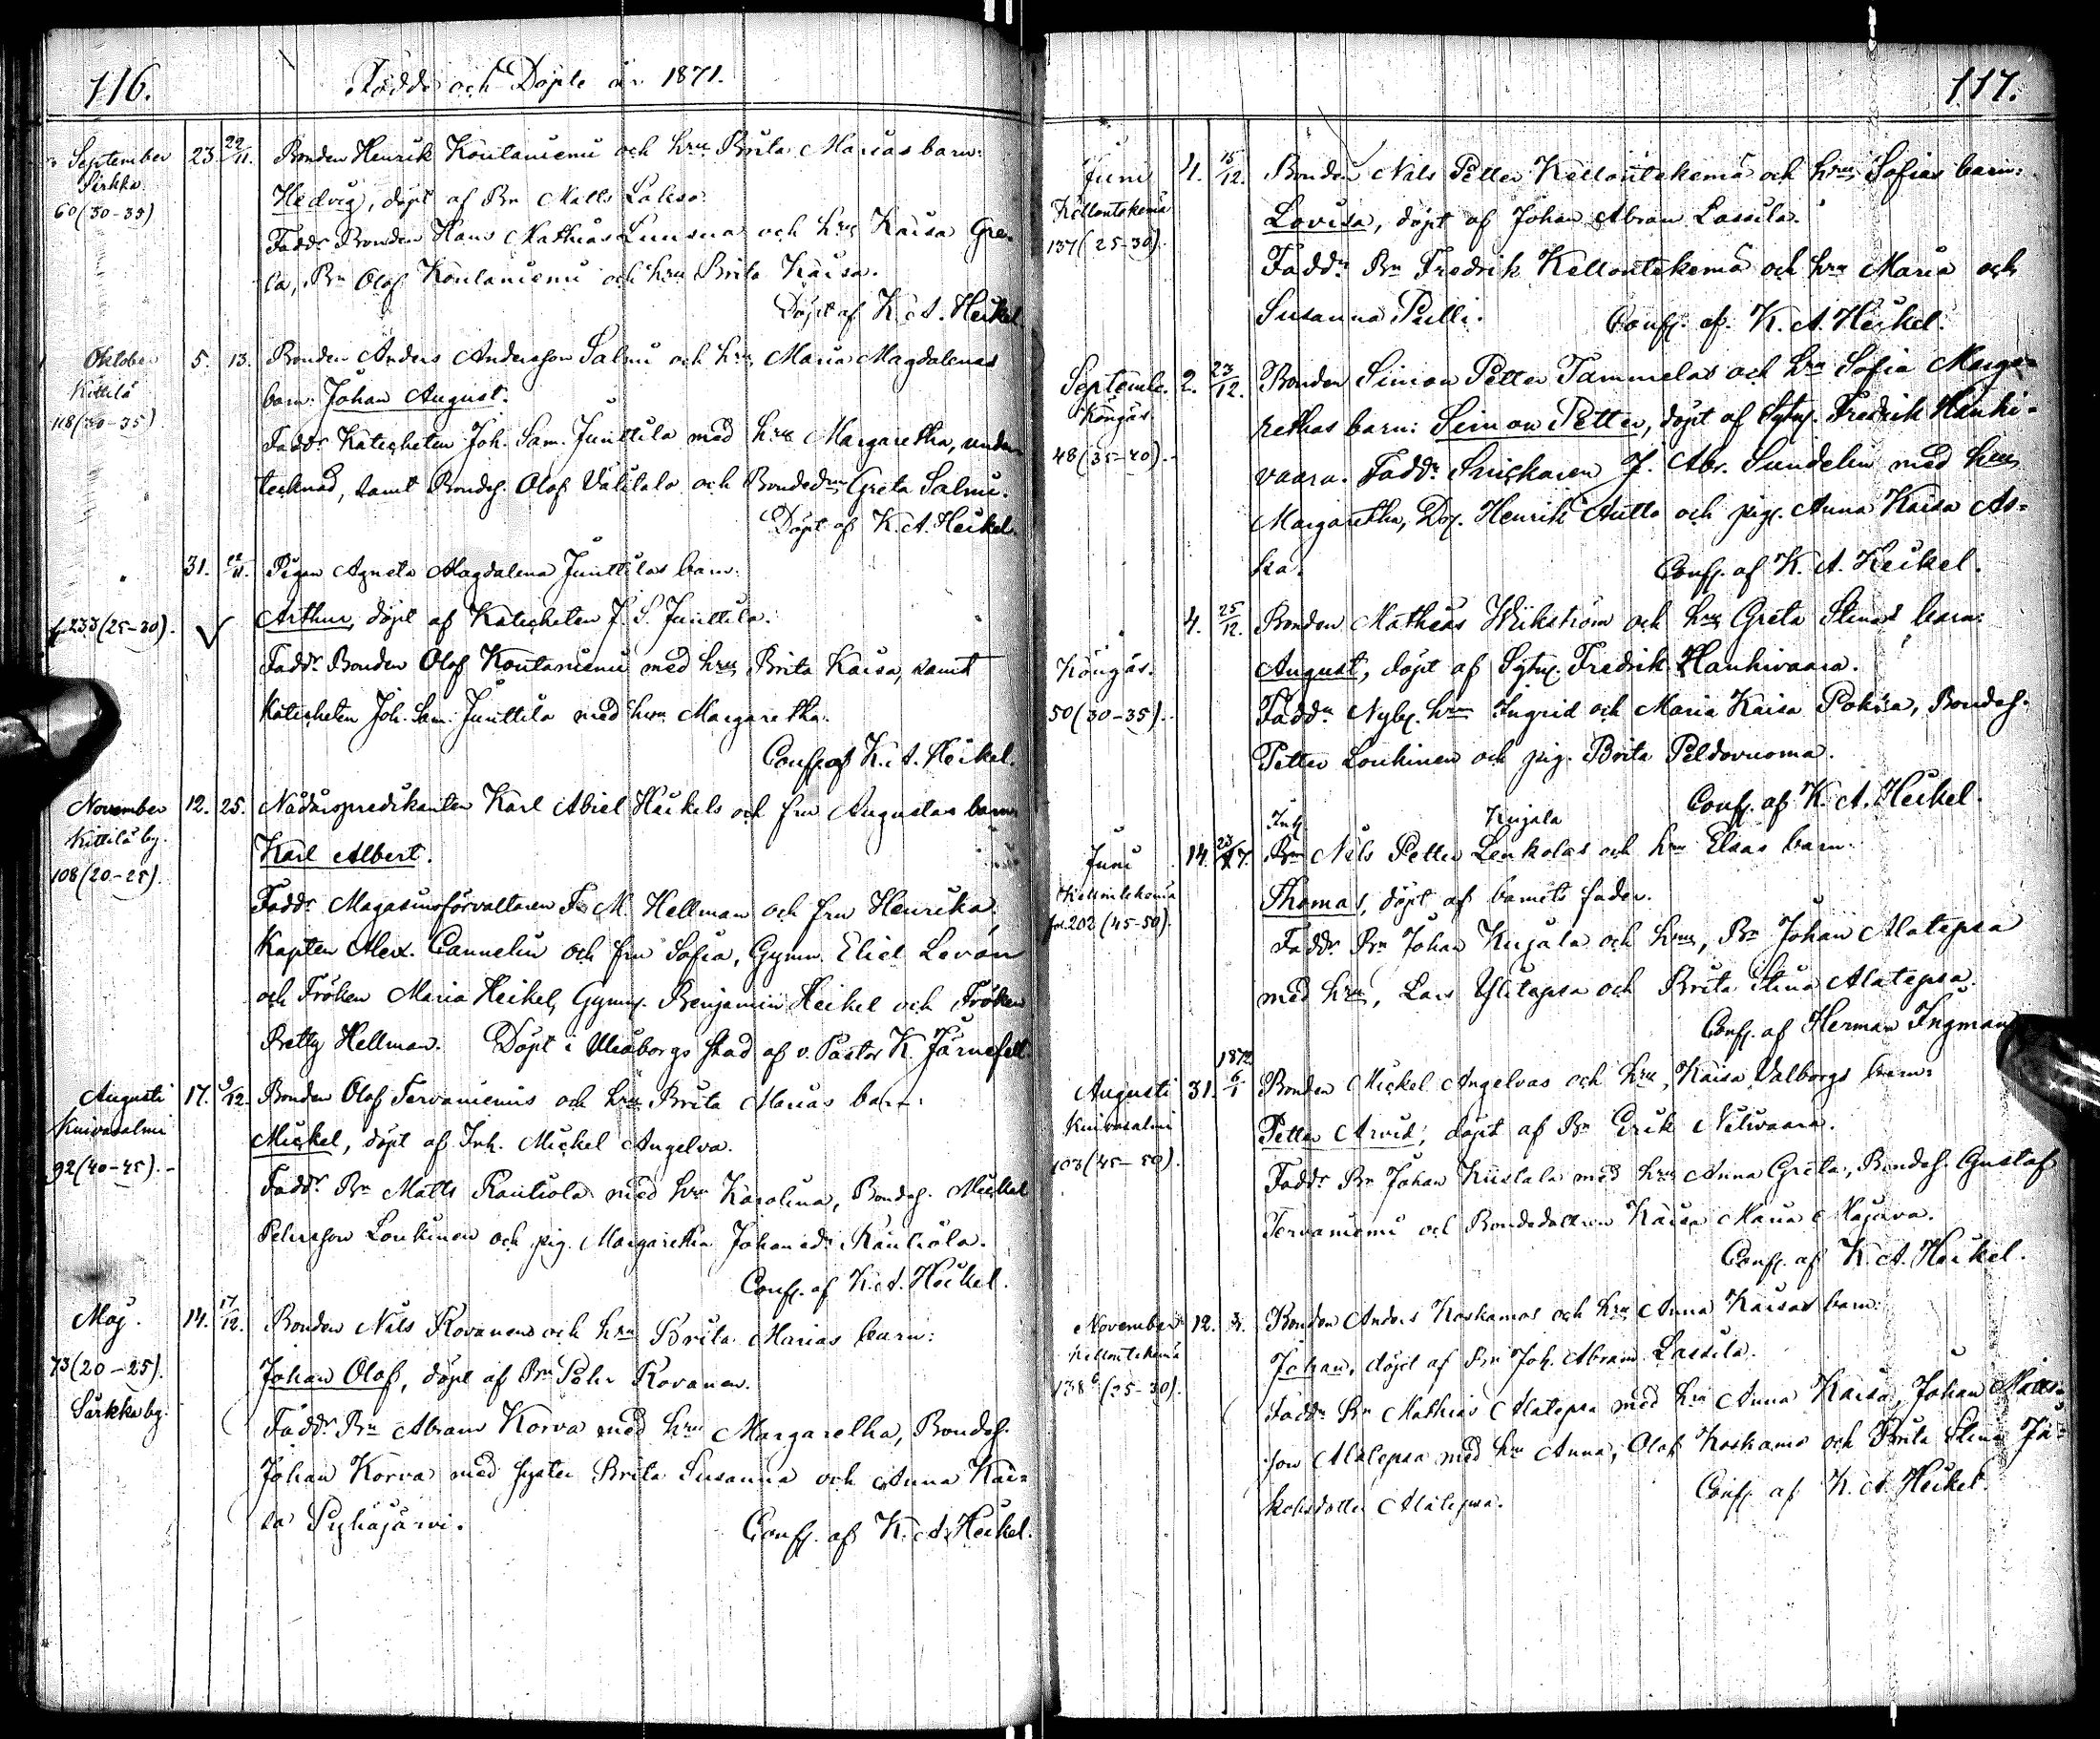 116.
Födde och Döpte år 1871.
September 23. 22/11. Bonden Henrik Kontaniemi och hru Brita Marias barn:
Sirkka Hedvig, döpt af Bn Matts Lakso.
60 (30-35) Faddr Bonden Hans Mathias och hru Kaisa Gre-
ta, Bn Olof Kontaniemi och hru Brita Kaisa.
Döpt af K. A. Heikel
Oktober 5. 13. Bonden Anders Andersson Salmi och hru Maria Magdalenas
Kittilä barn: Johan August.
118 (30-35) Faddr Katecheten Joh. Sam. Junttila med hru Margaretha, under-
tecknad, samt Bondes. Olof Välitalo och Bondedr Greta Salmi.
Döpt af K. A. Heikel.
" 31. 22/11. Pigan Agneta Magdalena Junttilas barn:
f. 233 (25-30). Arthur, döpt af Katecheten J. S. Junttila.
Faddr Bonden Olof Kontaniemi med hru Brita Kaisa, samt
Katecheten Joh. Sam. Junttila med hru Margaretha.
Conf. af K. A. Heikel.
November 12. 25. Nådårspredikanten Karl Abiel Heikels och fru Augustas barn
Kittilä by. Karl Albert.
108 (20-25). Faddr Magasinsförvaltaren F. M. Hellman och fru Henrika,
Kapten Alex. Cannelin och fru Sofia, Gymn. Eliel Levón
och Fröken Maria Heikel, Gymn. Benjamin Heikel och Fröken
Betty Hellman. Döpt i Uleåborgs stad af v. Pastor K. Järnefelt
Augusti 17. 9/12. Bonden Olof Tervaniemis och hru Brita Marias barn:
Kuivasalmi Mickel, döpt af Inh. Mickel Angelva.
92 (40-45). Faddr Bn Matts Rautiola med hru Karolina, Bondes. Mickel
Petersson Loukinen och pig. Margaretha Johansdr Rautiola.
Conf. af K. A. Heikel.
Maj. 14. 17/12. Bonden Nils Rovanens och hru Brita Marias barn:
73 (20-25). Johan Olof, döpt af Bn Petr Rovanen.
Sirkka by. Faddr Bn Abram Korva med hru Margaretha, Bondes.
Johan Korva med syster Brita Susanna och Anna Kai-
sa Pyhäjärvi.
Conf. af K. A. Heikel.
117.
Juni 4. 15/12. Bonden Nils Petter Kellontekemä och hrus Sofias barn:
Kellontekemä Lovisa, döpt af Johan Abram Lassila.
137 (25-30). Faddr Bn Fredrik Kellontekemä och hru Maria och
Susanna Pulli. Conf. af K. A. Heikel.
Septemb. 2. 23/12. Bonden Simon Petter Tammelas och hru Sofia Marga-
Köngäs rethas barn: Simon Petter, döpt af Sytn. Fredrik Hanhi-
48 (35-40). vaara. Faddr Snickaren J. Abr. Sundelin med hru
Margaretha, Dr. Henrik Autto och pig. Anna Kaisa As-
ka. Conf. af K. A. Heikel.
" 4. 25/12. Bonden Mathias Wikström och hrus Greta Stinas barn:
Köngäs. August, döpt af Sytn. Fredrik Hanhivaara.
50 (30-35). Faddr Nyb. hru Ingrid och Maria Kaisa Pokka, Bondes.
Petter Loukinen och pig. Brita Peldovuoma.
Conf. af K. A. Heikel.
Inh. Kujala
Juni 14. Bn Nils Petter Lenkolas och hru Elsas barn:
Kellontekemä Thomas, döpt af barnets fader.
fr. 202 (45-50). Faddr Bn Johan Kujala och hru, Bn Johan Alatepsa
med hru, Lars Ylitepsa och Brita Stina Alatepsa.
Conf. af Herman Ingman
1872
Augusti 31. 6/1 Bonden Mickel Angelvas och hru Kaisa Valborgs barn:
Kuivasalmi Petter Arvid, döpt af Bn Erik Nilivaara.
103 (45-50). Faddr Bn Johan Kiistala med hru Anna Greta, Bondes. Gustaf
Tervaniemi och Bondedottren Kaisa Maria Majava.
Conf. af K. A. Heikel.
November 12. Bonden Anders Koskamos och hru Anna Kaisas barn:
Kellontekemä Johan, döpt af Bn Joh. Abram Lassila.
138 (25-30). Faddr Bn Mathias Alatepsa med hru Anna Kaisa, Johan Matts-
son Alatepsa med hru Anna, Olof Koskamo och Brita Stina Ja-
kobsdotter Alatepsa. Conf. af K. A. Heikel.